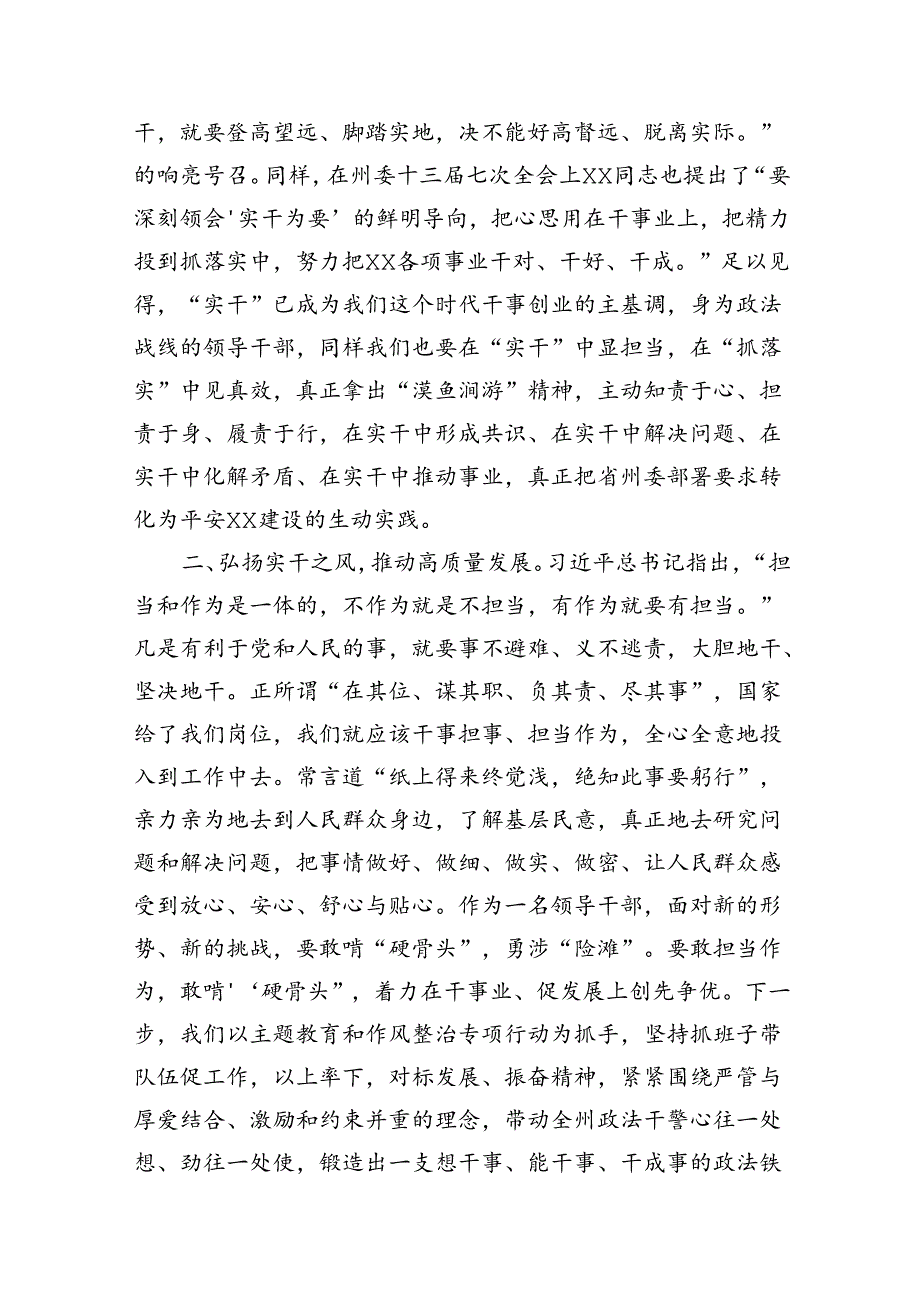 干，就要登高望远、脚踏实地，决不能好高督远、脱离实际。”
的响亮号召。同样，在州委十三届七次全会上XX同志也提出了“要
深刻领会'实干为要’的鲜明导向，把心思用在干事业上，把精力
投到抓落实中，努力把XX各项事业干对、干好、干成。”足以见
得，“实干”已成为我们这个时代干事创业的主基调，身为政法
战线的领导干部，同样我们也要在“实干”中显担当，在“抓落
实”中见真效，真正拿出“漠鱼涧游”精神，主动知责于心、担
责于身、履责于行，在实干中形成共识、在实干中解决问题、在
实干中化解矛盾、在实干中推动事业，真正把省州委部署要求转
化为平安XX建设的生动实践。
二、弘扬实干之风，推动高质量发展。习近平总书记指出，“担
当和作为是一体的，不作为就是不担当，有作为就要有担当。”
凡是有利于党和人民的事，就要事不避难、义不逃责，大胆地干、
坚决地干。正所谓“在其位、谋其职、负其责、尽其事”，国家
给了我们岗位，我们就应该干事担事、担当作为，全心全意地投
入到工作中去。常言道“纸上得来终觉浅，绝知此事要躬行”，
亲力亲为地去到人民群众身边，了解基层民意，真正地去研究问
题和解决问题，把事情做好、做细、做实、做密、让人民群众感
受到放心、安心、舒心与贴心。作为一名领导干部，面对新的形
势、新的挑战，要敢啃“硬骨头”，勇涉“险滩”。要敢担当作
为，敢啃'‘硬骨头”，着力在干事业、促发展上创先争优。下一
步，我们以主题教育和作风整治专项行动为抓手，坚持抓班子带
队伍促工作，以上率下，对标发展、振奋精神，紧紧围绕严管与
厚爱结合、激励和约束并重的理念，带动全州政法干警心往一处
想、劲往一处使，锻造出一支想干事、能干事、干成事的政法铁